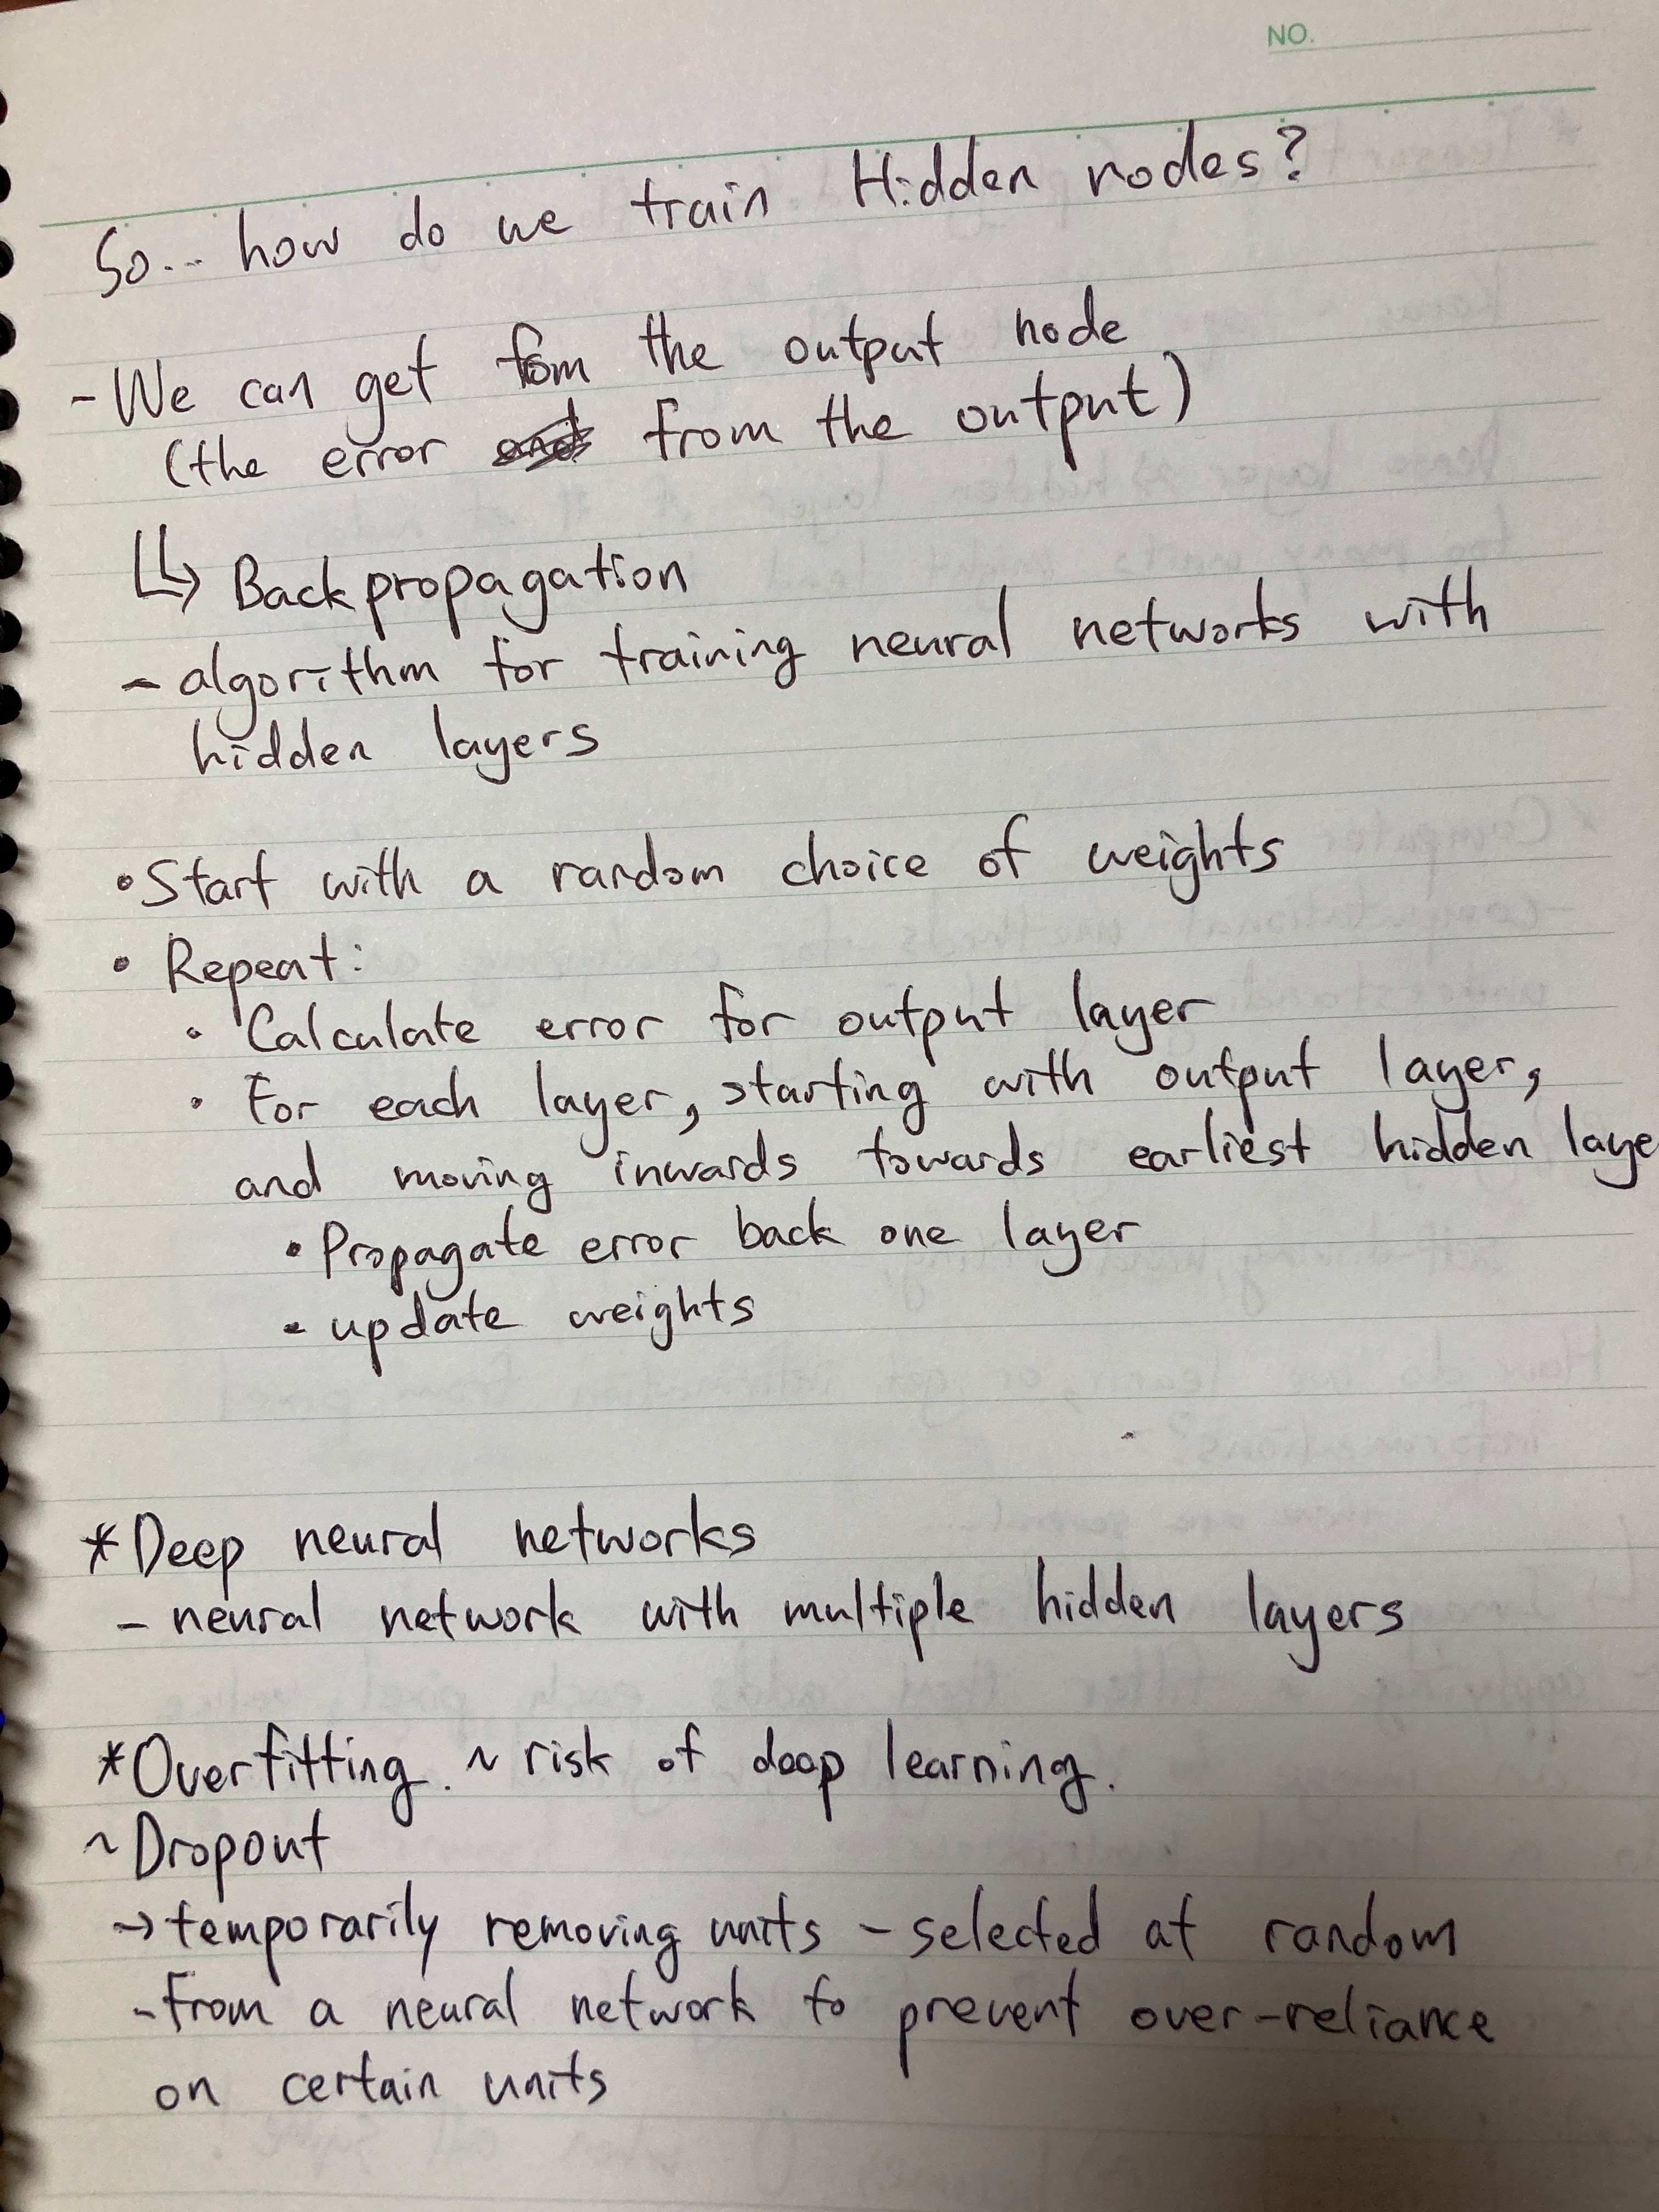 NO.
So... how do we train Hidden nodes?
- We can get fom the output node
(the error from the output)
↳ Backpropagation
- algorithm for training neural networks with
hidden layers
• Start with a random choice of weights
• Repeat:
• Calculate error for output layer
• For each layer, starting with output layer,
and moving inwards towards earliest hidden laye
• Propagate error back one layer
• update weights
* Deep neural networks
- neural network with multiple hidden layers
* Overfitting. ~ risk of deep learning.
~ Dropout
→ temporarily removing units - selected at random
- from a neural network to prevent over-reliance
on certain units